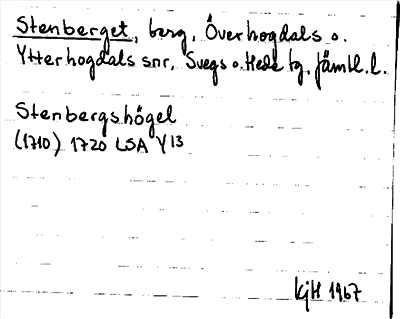 Stenberget, berg, Överhogdals o.
Ytterhogdals snr, Svegs o. Hede tg, Jämtl. l.
Stenbergshögel
(1710) 1720 LSA Y13
kjH 1967